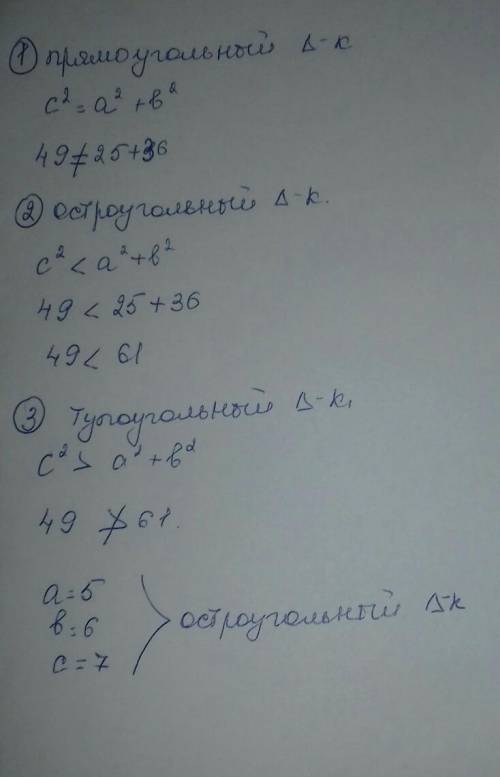 ① прямоугольный Δ-к
c² = a² + b²
49 ≠ 25 + 36
② остроугольный Δ-к.
c² < a² + b²
49 < 25 + 36
49 < 61
③ тупоугольный Δ-к,
c² > a² + b²
49 ≯ 61.
a = 5
b = 6
остроугольный Δ-к
c = 7